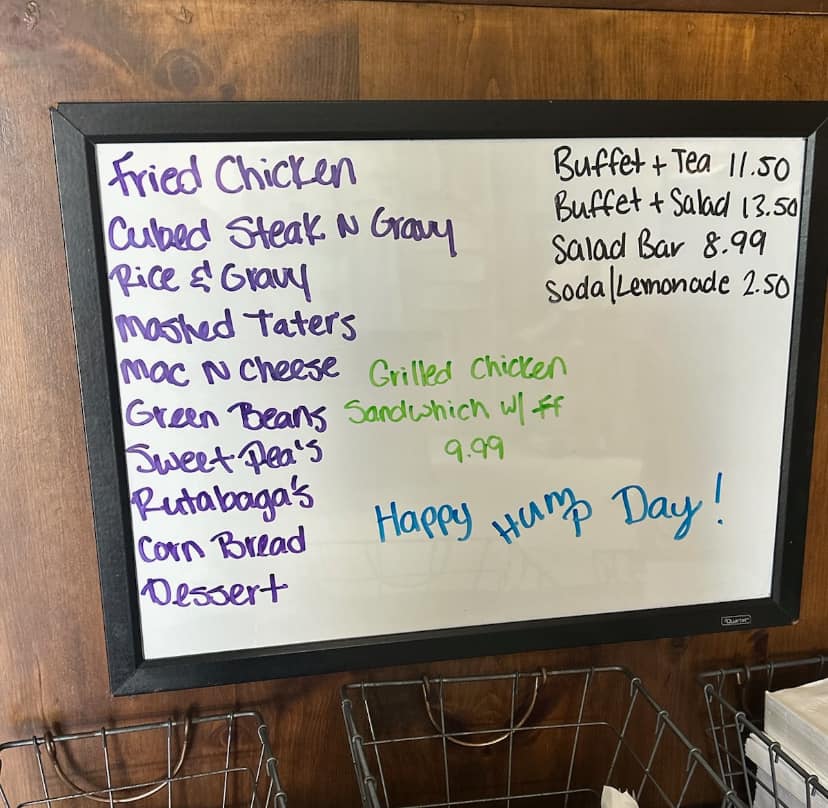 Fried Chicken
Cubed Steak N Gravy
Rice & Gravy
Mashed Taters
Mac N Cheese
Green Beans
Sweet Pea's
Rutabaga's
Corn Bread
Dessert
Buffet + Tea 11.50
Buffet + Salad 13.50
Salad Bar 8.99
Soda/Lemonade 2.50
Grilled Chicken
Sandwhich w/ ff
9.99
Happy Hump Day!
Quartet